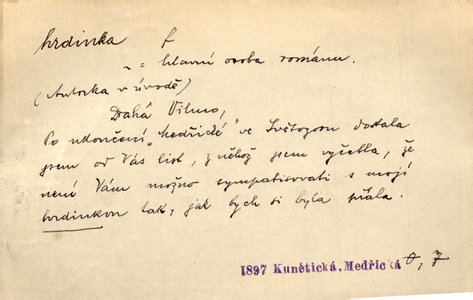 hrdinka f
~ = hlavní osoba románu.
(Autorka v úvodě)
Drahá Vilmo,
Po ukončení „Medřické" ve Světozoru dostala
jsem od Vás list, z něhož jsem vyčetla, že
není Vám možno sympatisovati s mojí
hrdinkou tak, jak bych si byla přála.
1897 Kunětická, Medřická 0, 7